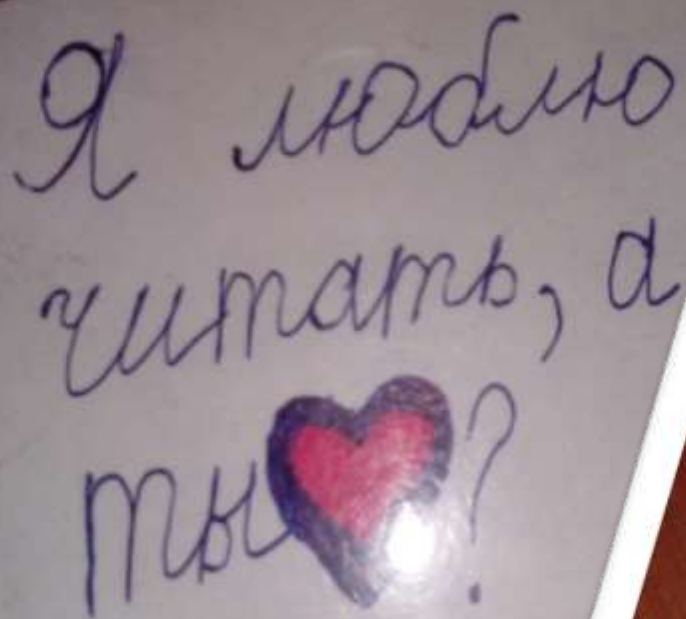 Я люблю
читать, а
ты ?